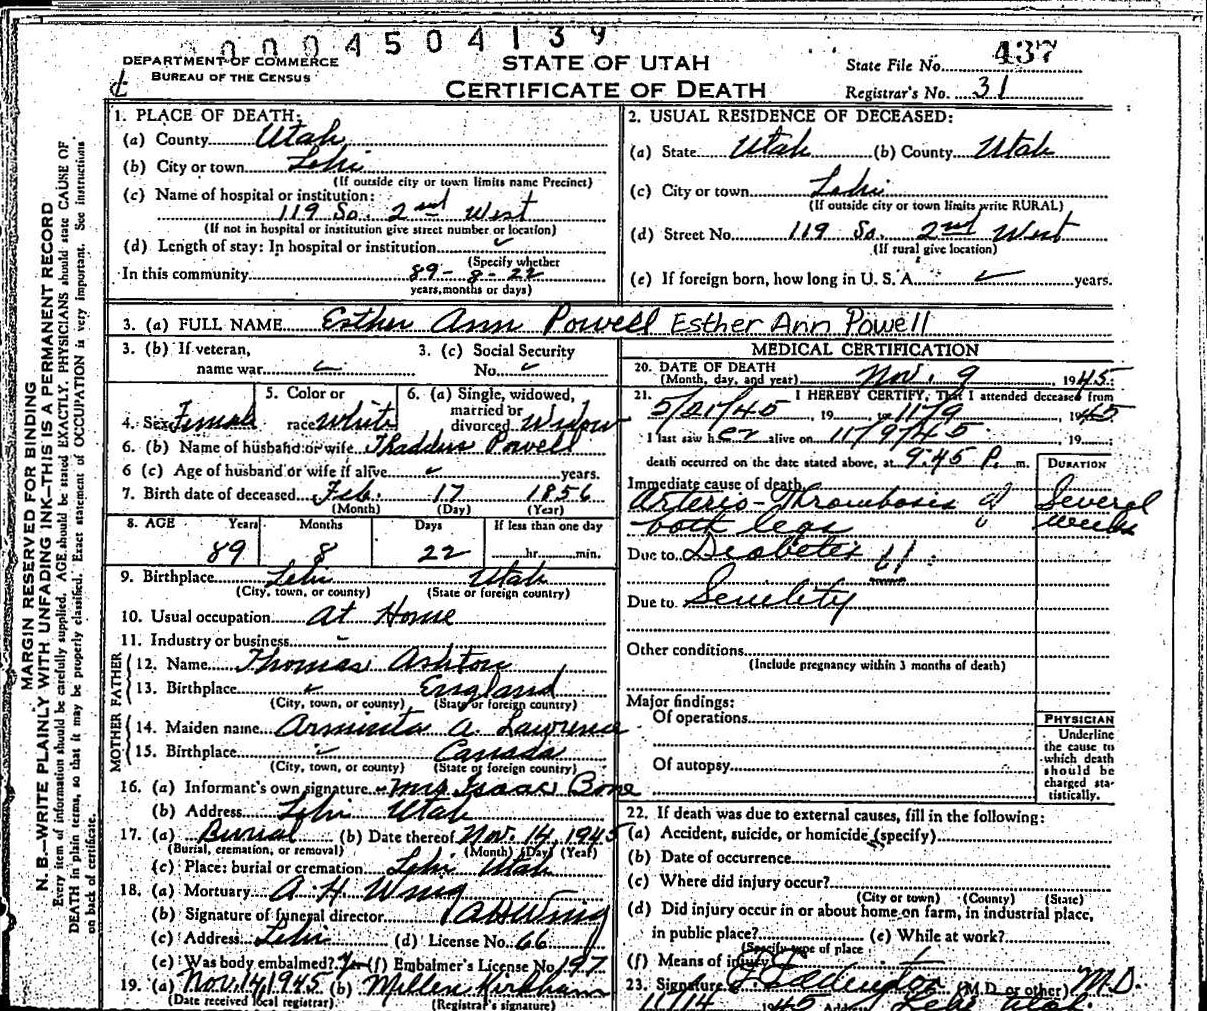 00004504139
DEPARTMENT OF COMMERCE
BUREAU OF THE CENSUS
STATE OF UTAH
CERTIFICATE OF DEATH
State File No. 437
Registrar's No. 31
MARGIN RESERVED FOR BINDING
N. B.—WRITE PLAINLY WITH UNFADING INK—THIS IS A PERMANENT RECORD
Every item of information should be carefully supplied. AGE should be stated EXACTLY. PHYSICIANS should state CAUSE OF
DEATH in plain terms, so that it may be properly classified. Exact statement of OCCUPATION is very important. See instructions
on back of certificate.
1. PLACE OF DEATH:
(a) County Utah
(b) City or town Lehi
(If outside city or town limits name Precinct)
(c) Name of hospital or institution:
119 So. 2nd West
(If not in hospital or institution give street number or location)
(d) Length of stay: In hospital or institution
(Specify whether
In this community 89-8-22
years, months or days)
2. USUAL RESIDENCE OF DECEASED:
(a) State Utah (b) County Utah
(c) City or town Lehi
(If outside city or town limits write RURAL)
(d) Street No. 119 So. 2nd West
(If rural give location)
(e) If foreign born, how long in U. S. A. years.
3. (a) FULL NAME Esther Ann Powell Esther Ann Powell
3. (b) If veteran,
name war
3. (c) Social Security
No.
4. Sex Female
5. Color or
race White
6. (a) Single, widowed,
married or
divorced Widow
6. (b) Name of husband or wife Thaddeus Powell
6 (c) Age of husband or wife if alive years.
7. Birth date of deceased Feb. 17 1856
(Month) (Day) (Year)
8. AGE Years Months Days If less than one day
89 8 22 hr. min.
9. Birthplace Lehi Utah
(City, town, or county) (State or foreign country)
10. Usual occupation At Home
11. Industry or business
FATHER
12. Name Thomas Ashton
13. Birthplace England
(City, town, or county) (State or foreign country)
MOTHER
14. Maiden name Arminta A. Lawrence
15. Birthplace Canada
(City, town, or county) (State or foreign country)
16. (a) Informant's own signature Mrs Isaac Bone
(b) Address Lehi Utah
17. (a) Burial (b) Date thereof Nov. 14, 1945
(Burial, cremation, or removal) (Month) (Day) (Year)
(c) Place: burial or cremation Lehi Utah
18. (a) Mortuary A. H. Wing
(b) Signature of funeral director A H Wing
(c) Address Lehi (d) License No. 66
(e) Was body embalmed? (f) Embalmer's License No. 197
19. (a) Nov. 14, 1945 (b) Millen Kirkham
(Date received local registrar) (Registrar's signature)
MEDICAL CERTIFICATION
20. DATE OF DEATH
(Month, day, and year) Nov. 9, 1945.
21. I HEREBY CERTIFY, That I attended deceased from
5/21/45, 19 , to 11/9, 1945
I last saw her alive on 11/9/45, 19 ;
death occurred on the date stated above, at 9:45 P. m.
DURATION
Immediate cause of death
Arterio-Thrombosis of Several
both legs weeks
Due to Diabetes
Due to Senility
Other conditions
(Include pregnancy within 3 months of death)
Major findings:
Of operations
Of autopsy
PHYSICIAN
Underline
the cause to
which death
should be
charged sta-
tistically.
22. If death was due to external causes, fill in the following:
(a) Accident, suicide, or homicide (specify)
(b) Date of occurrence
(c) Where did injury occur?
(City or town) (County) (State)
(d) Did injury occur in or about home on farm, in industrial place,
in public place? (e) While at work?
(Specify type of place)
(f) Means of injury
23. Signature Eddington M.D.
(M.D. or other)
11/14 1945 Address Lehi Utah